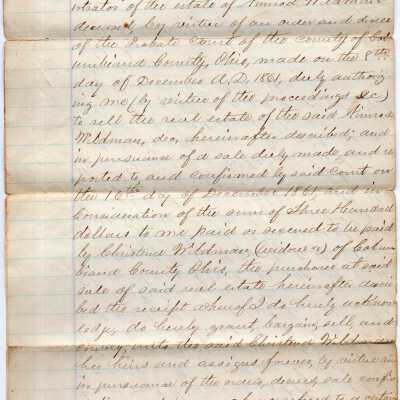 istrator of the estate of Nimrod Wildman
deceased, by virtue of an order and decree
of the Probate Court of the county of Col
umbiana County, Ohio, made on the 8th
day of December A.D. 1861, duly authoriz
ing me (by virtue of the proceedings &c)
to sell the real estate of the said Nimrod
Wildman, dec, hereinafter described; and
in pursuance of a sale duly made, and re
ported to, and confirmed by said court on
the 16th day of December 1861, and in
Consideration of the sum of Three Hundred
dollars to me paid or secured to be paid
by Christend Wildman (widow &) of Colum
biana County Ohio, the purchaser at said
sale of said real estate hereinafter descri
bed the receipt whereof I do hereby acknow
ledge, do hereby grant, bargain, sell, and
convey unto the said Christend Wildman
her heirs and assigns forever, by virtue and
in pursuance of the order, decree, sale confir